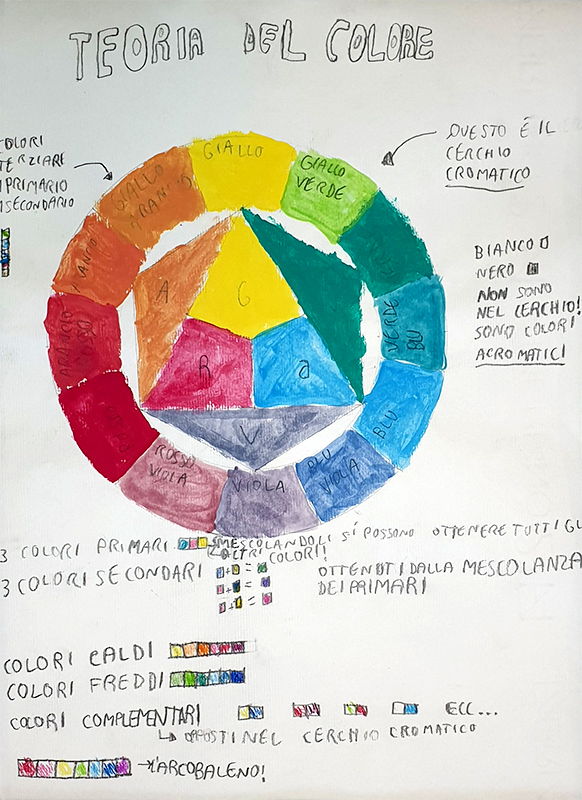 TEORIA DEL COLORE
COLORI
TERZIARI
PRIMARIO
SECONDARIO
QUESTO È IL
CERCHIO
CROMATICO
BIANCO
NERO
NON SONO
NEL CERCHIO!
SONO COLORI
ACROMATICI
GIALLO
GIALLO
VERDE
VERDE
BLU
BLU
BLU
VIOLA
VIOLA
ROSSO
VIOLA
ROSSO
GIALLO
A
G
R
B
V
3 COLORI PRIMARI
MESCOLANDOLI SI POSSONO OTTENERE TUTTI GLI
ALTRI COLORI!
3 COLORI SECONDARI
+ =
+ =
+ =
OTTENUTI DALLA MESCOLANZA
DEI PRIMARI
COLORI CALDI
COLORI FREDDI
COLORI COMPLEMENTARI
ECC...
OPPOSTI NEL CERCHIO CROMATICO
L'ARCOBALENO!